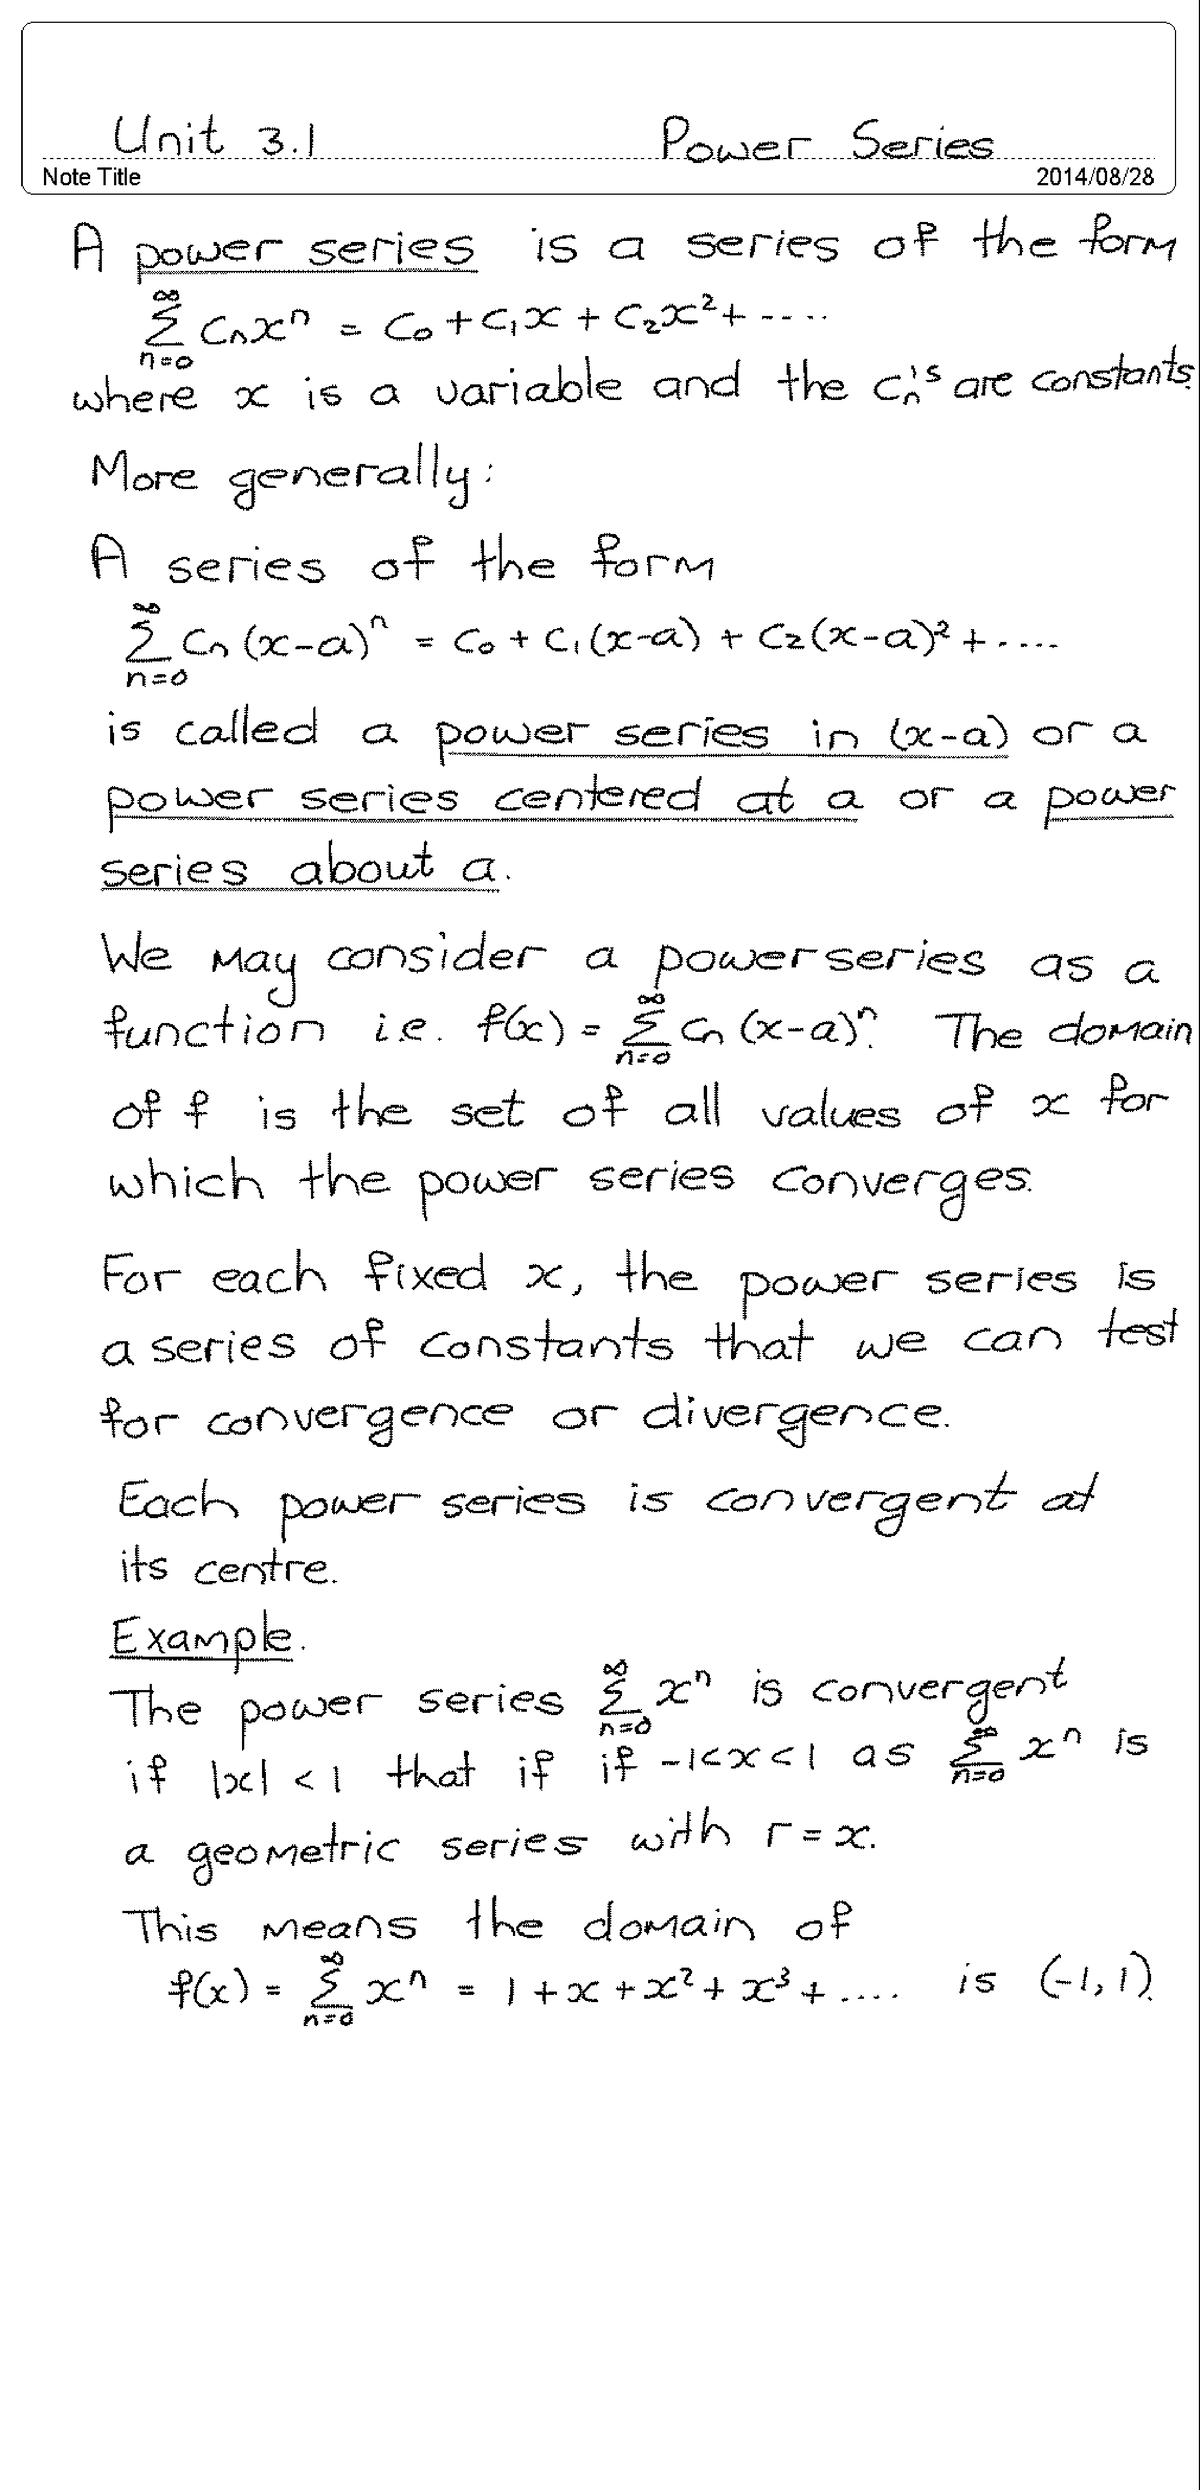 Unit 3.1 Power Series
Note Title 2014/08/28
A power series is a series of the form
$\sum_{n=0}^{\infty} c_n x^n = c_0 + c_1 x + c_2 x^2 + ....$
where x is a variable and the $c_n$'s are constants.
More generally:
A series of the form
$\sum_{n=0}^{\infty} c_n (x-a)^n = c_0 + c_1 (x-a) + c_2 (x-a)^2 + ....$
is called a power series in (x-a) or a
power series centered at a or a power
series about a.
We may consider a power series as a
function i.e. $f(x) = \sum_{n=0}^{\infty} c_n (x-a)^n$. The domain
of f is the set of all values of x for
which the power series converges.
For each fixed x, the power series is
a series of constants that we can test
for convergence or divergence.
Each power series is convergent at
its centre.
Example.
The power series $\sum_{n=0}^{\infty} x^n$ is convergent
if |x| < 1 that if if -1<x<1 as $\sum_{n=0}^{\infty} x^n$ is
a geometric series with r = x.
This means the domain of
$f(x) = \sum_{n=0}^{\infty} x^n = 1 + x + x^2 + x^3 + ....$ is (-1, 1).